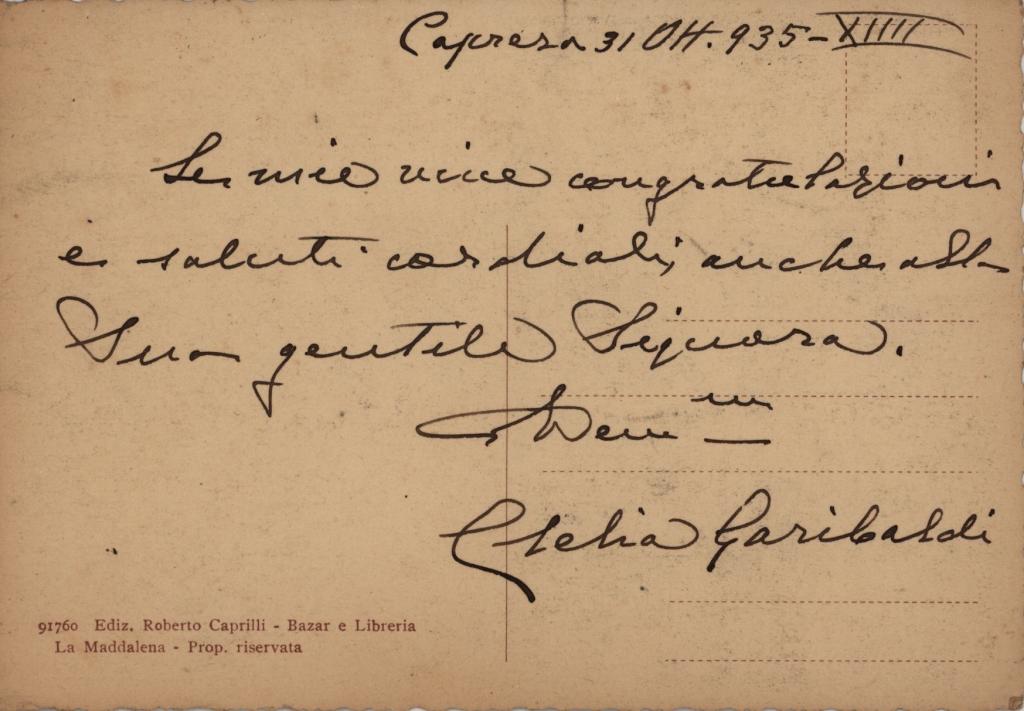 Caprera 31 Ott. 935 - XIIII
Le mie vive congratulazioni
e saluti cordiali, anche alla
Sua gentile Signora.
Dev ma
Clelia Garibaldi
91760 Ediz. Roberto Caprilli - Bazar e Libreria
La Maddalena - Prop. riservata